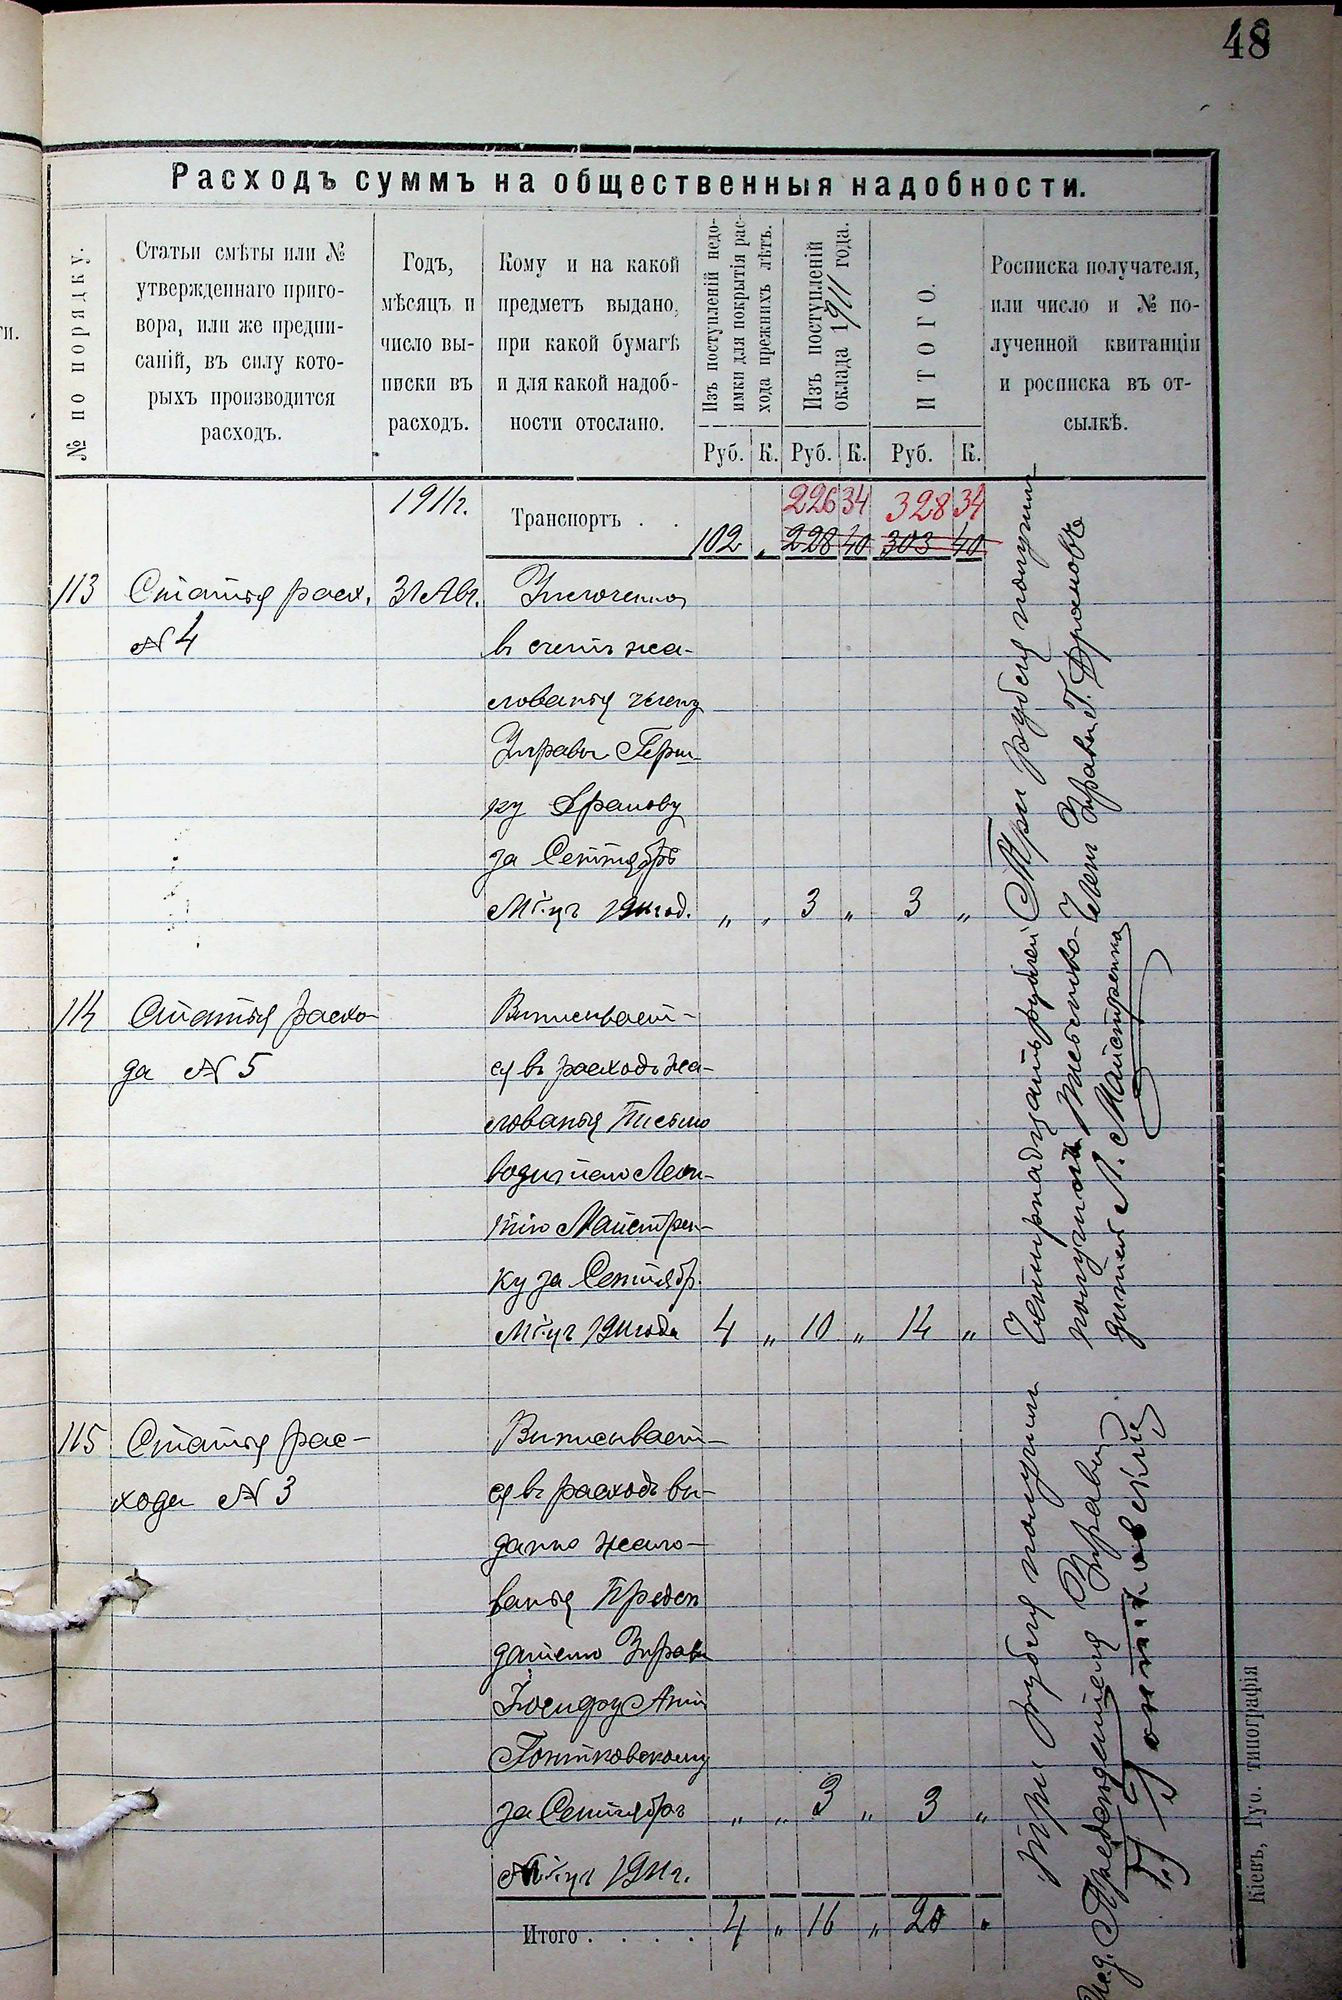 48
Расходъ суммъ на общественныя надобности.
№ по порядку.
Статьи смѣты или №
утвержденнаго приго-
вора, или же предпи-
саній, въ силу кото-
рыхъ производится
расходъ.
Годъ,
мѣсяцъ и
число вы-
писки въ
расходъ.
Кому и на какой
предметъ выдано,
при какой бумагѣ
и для какой надоб-
ности отослано.
Изъ поступленій недо-
имки для покрытія рас-
хода прежнихъ лѣтъ.
Изъ поступленій
оклада 1911 года.
ИТОГО.
Росписка получателя,
или число и № по-
лученной квитанціи
и росписка въ от-
сылкѣ.
Руб. К. Руб. К. Руб. К.
226 34 328 34
1911г. Транспортъ . . 102 „ 228 40 303 40
113 Статья расх. 31 Авг. Уплочено
№ 4 в счетъ жа-
лованья члену
Управы Герш-
ку Драновву
за Сентябрь
Мѣ-цъ 1911 год. „ „ 3 „ 3 „
Три рубля получил
Член Управы Г. Драновъ
114 Статья расхо- Выписывает-
да № 5 ся въ расходъ жа-
лованья Письмо
водителю Леон-
тію Майстрен-
ку за Сентябр.
Мѣ-цъ 1911 года 4 „ 10 „ 14 „
Четырнадцать рублей
получил Письмово-
дитель Л. Майстренко
115 Статья рас- Выписывает-
хода № 3 ся въ расходъ вы-
дано жало-
ванья Предсѣ
дателю Управы
Понтковскому
за Сентябрь „ „ 3 „ 3 „
Мѣ-цъ 1911 г.
Три рубля получил
Управы
Понтковскій
Итого . . . . 4 „ 16 „ 20 „
Кіевъ, Губ. типографія